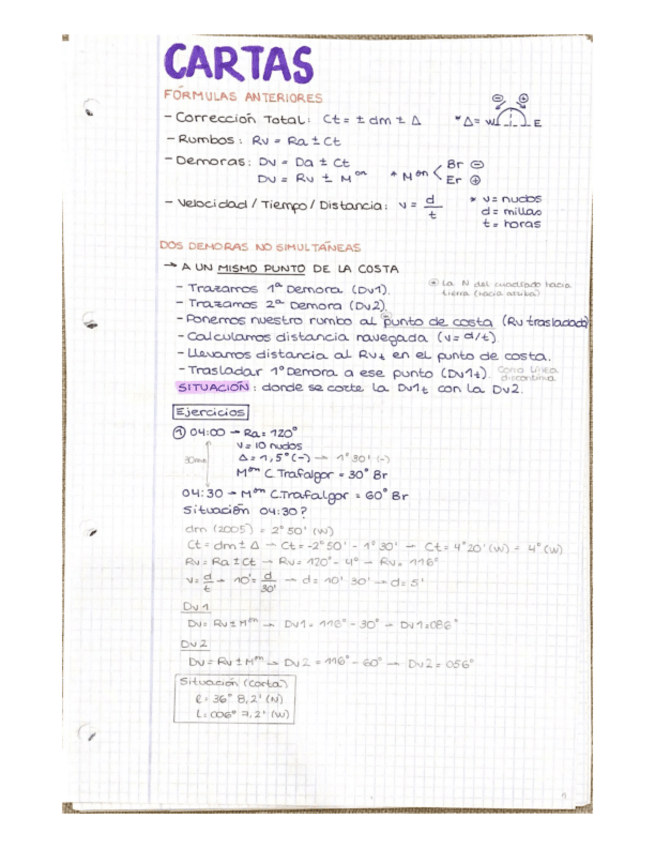 CARTAS
FÓRMULAS ANTERIORES
- Corrección Total: Ct = ± dm ± Δ * Δ = W E
⊖ ⊕
- Rumbos: Rv = Ra ± Ct
- Demoras: Dv = Da ± Ct
Dv = Rv ± Mᵒⁿ * Mᵒⁿ < Br ⊖
Er ⊕
- Velocidad / Tiempo / Distancia: v = d/t * v = nudos
d = millas
t = horas
DOS DEMORAS NO SIMULTÁNEAS
→ A UN MISMO PUNTO DE LA COSTA
* La N del cuadrado hacia
tierra (hacia arriba)
- Trazamos 1ª Demora (Dv1).
- Trazamos 2ª Demora (Dv2).
- Ponemos nuestro rumbo al punto de costa (Rv trasladado)
- Calculamos distancia navegada (v = d/t).
- Llevamos distancia al Rvt en el punto de costa.
- Trasladar 1ª Demora a ese punto (Dv1t). Como línea
discontinua
SITUACIÓN: donde se corte la Dv1t con la Dv2.
Ejercicios
① 04:00 → Ra = 120°
V = 10 nudos
Δ = 1,5° (-) → 1° 30' (-)
30min
Mᵒⁿ C.Trafalgar = 30° Br
04:30 → Mᵒⁿ C.Trafalgar = 60° Br
Situación 04:30?
dm (2005) = 2° 50' (W)
Ct = dm ± Δ → Ct = -2° 50' - 1° 30' → Ct = 4° 20' (W) = 4° (W)
Rv = Ra ± Ct → Rv = 120° - 4° → Rv = 116°
v = d/t → 10' = d/30' → d = 10' 30' → d = 5'
Dv 1
Dv = Rv ± Mᵒⁿ → Dv1 = 116° - 30° → Dv1 = 086°
Dv 2
Dv = Rv ± Mᵒⁿ → Dv2 = 116° - 60° → Dv2 = 056°
Situación (carta)
l = 36° 8,2' (N)
L = 006° 7,2' (W)